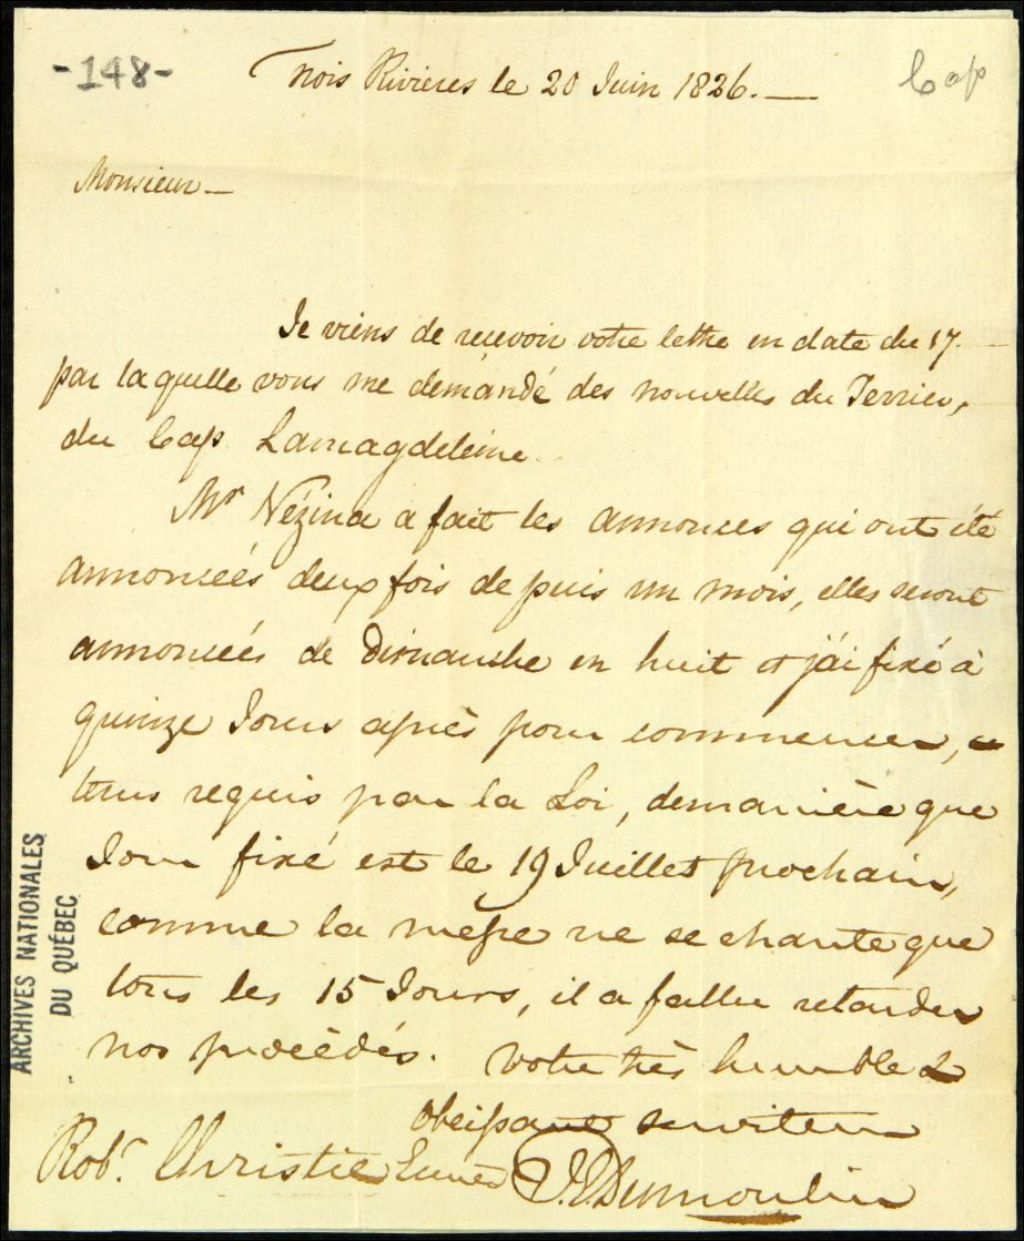 -148-
Cap
Trois Rivieres le 20 Juin 1826.—
Monsieur—
Je viens de recevoir votre lettre en date du 17.
par laquelle vous me demandé des nouvelles du Terrier,
du Cap Lamagdeleine
Mr Vézina a fait les annonces qui ont été
annonceés deux fois de puis un mois, elles seront
annonceés de Dimanche en huit et j'ai fixé à
quinze Jours après pour commencer,
tems requis par la Loi, demanière que
Jour fixé est le 19 Juillet prochain,
comme la messe ne se chante que
tous les 15 Jours, il a fallu retarder
nos procèdés. votre très humble &
obeissant serviteur
Robt. Christie
J.E. Dumoulin
ARCHIVES NATIONALES
DU QUÉBEC